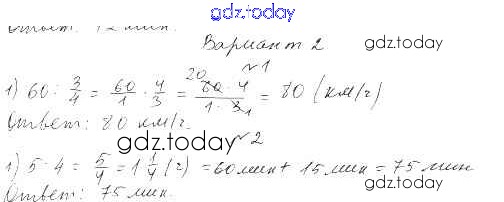 gdz.today
Ответ: 12 мин.
Вариант 2
gdz.today
№1
1) 60 : 3/4 = 60/1 · 4/3 = 60 · 4 / 1 · 3 = 80 (км/ч)
20
1
Ответ: 80 км/ч.
gdz.today
№2
1) 5 : 4 = 5/4 = 1 1/4 (ч) = 60 мин + 15 мин = 75 мин
Ответ: 75 мин.
gdz.today